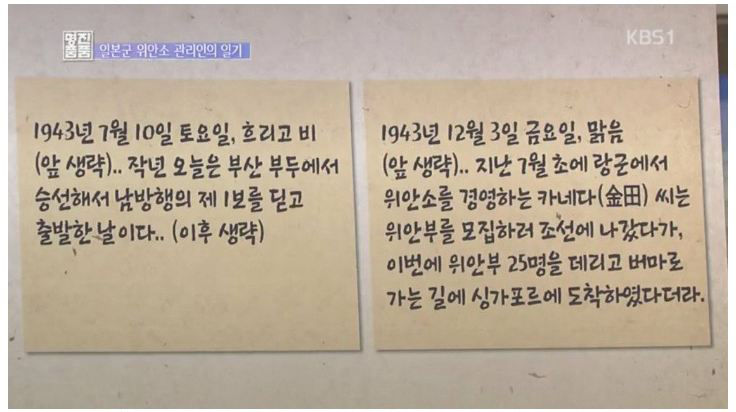 명작진품
일본군 위안소 관리인의 일기
KBS1
1943년 7월 10일 토요일, 흐리고 비
(앞 생략).. 작년 오늘은 부산 부두에서
승선해서 남방행의 제 1보를 딛고
출발한 날이다.. (이후 생략)
1943년 12월 3일 금요일, 맑음
(앞 생략).. 지난 7월 초에 랑군에서
위안소를 경영하는 카네다(金田) 씨는
위안부를 모집하러 조선에 나갔다가,
이번에 위안부 25명을 데리고 버마로
가는 길에 싱가포르에 도착하였다더라.